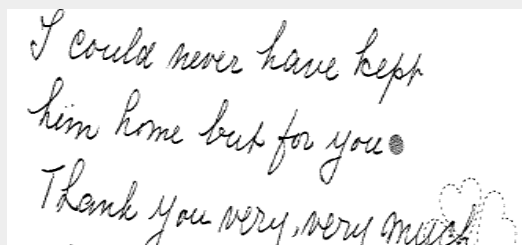 I could never have kept
him home but for you.
Thank you very, very much